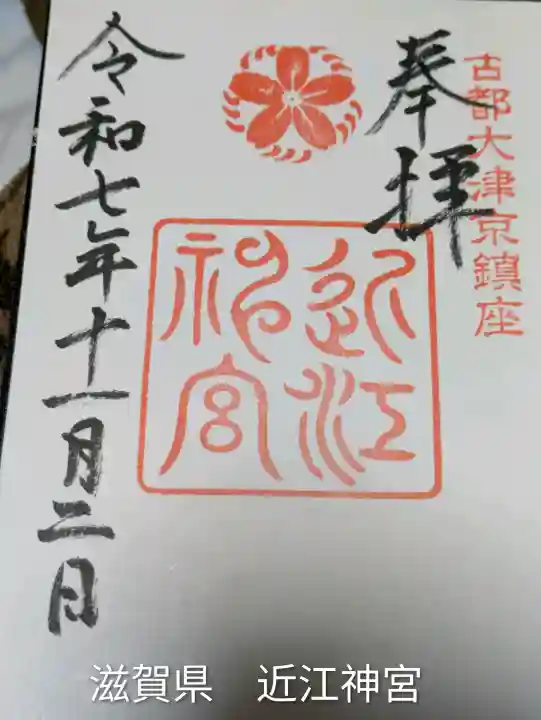 古都大津京鎮座
奉拝
近江
神宮
令和七年十一月二日
滋賀県　近江神宮